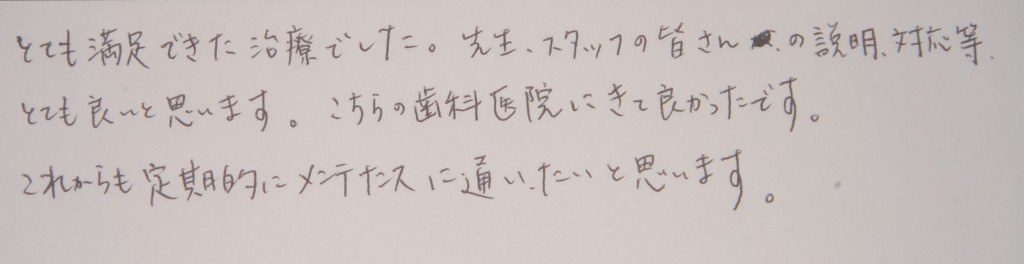 とても満足できた治療でした。先生、スタッフの皆さんの説明、対応等、
とても良いと思います。こちらの歯科医院にきて良かったです。
これからも定期的にメンテナンスに通いたいと思います。